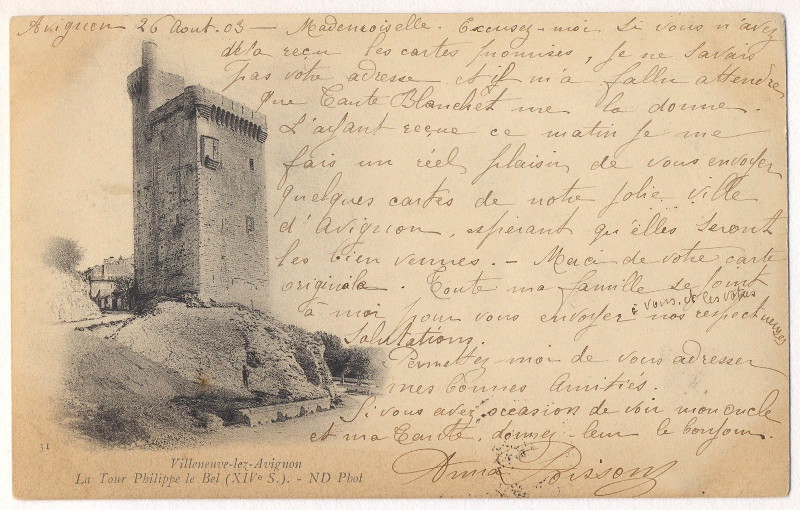 Avignon 26 Aout. 03 — Mademoiselle. Excusez-moi si vous n'avez
déjà reçu les cartes promises, je ne savais
pas votre adresse et il m'a fallu attendre
que Tante Blanchet me la donne.
L'ayant reçue ce matin je me
fais un réel plaisir de vous envoyer
quelques cartes de notre jolie ville
d'Avignon, espérant qu'elles seront
les bien venues. — Merci de votre carte
originale. Toute ma famille se joint
à moi pour vous envoyer à vous et les vôtres nos respectueuses
salutations.
Permettez moi de vous adresser
mes bonnes amitiés.
Si vous avez occasion de voir mon oncle
et ma Tante, donnez-leur le bonjour.
Anna Poisson
31
Villeneuve-lez-Avignon
La Tour Philippe le Bel (XIVe S.). - ND Phot